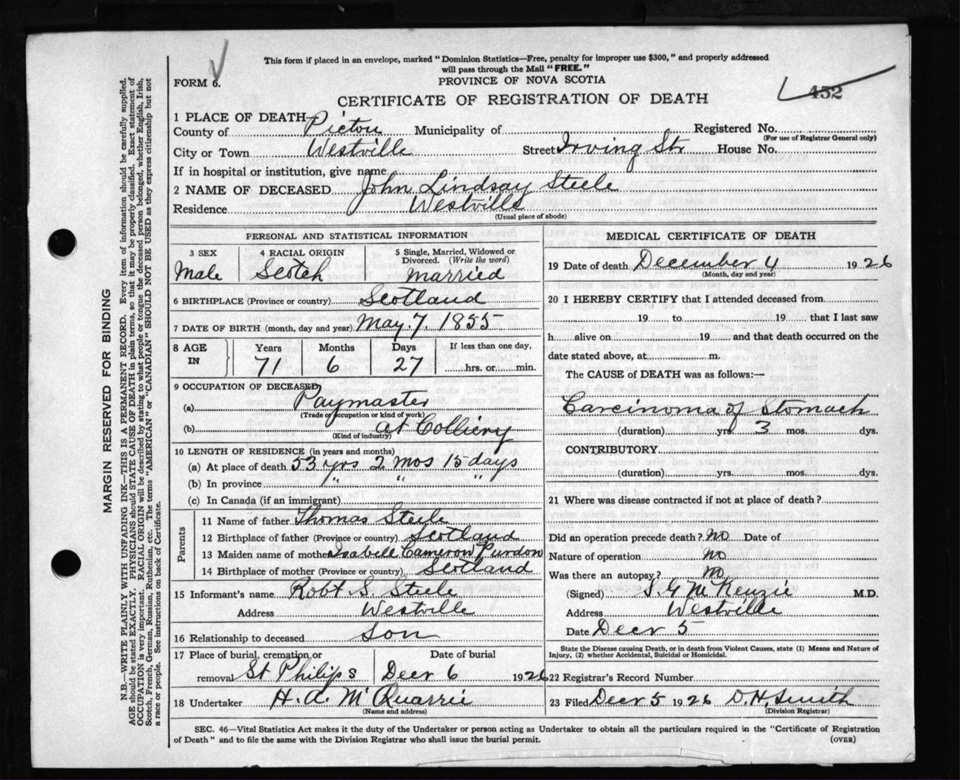 This form if placed in an envelope, marked "Dominion Statistics—Free, penalty for improper use $300," and properly addressed
will pass through the Mail "FREE."
FORM 6.
PROVINCE OF NOVA SCOTIA
CERTIFICATE OF REGISTRATION OF DEATH
452
1 PLACE OF DEATH
County of Pictou Municipality of Registered No.
(For use of Registrar General only)
City or Town Westville Street Irving Str House No.
If in hospital or institution, give name
2 NAME OF DECEASED John Lindsay Steele
Residence Westville
(Usual place of abode)
PERSONAL AND STATISTICAL INFORMATION
3 SEX 4 RACIAL ORIGIN 5 Single, Married, Widowed or
Divorced. (Write the word)
Male Scotch married
6 BIRTHPLACE (Province or country) Scotland
7 DATE OF BIRTH (month, day and year) May. 7. 1855
8 AGE IN Years Months Days If less than one day,
71 6 27 hrs. or min.
9 OCCUPATION OF DECEASED
(a) Paymaster
(Trade or occupation or kind of work)
(b) at Colliery
(Kind of industry)
10 LENGTH OF RESIDENCE (in years and months)
(a) At place of death 53 yrs 2 mos 15 days
(b) In province " " "
(c) In Canada (if an immigrant)
Parents
11 Name of father Thomas Steele
12 Birthplace of father (Province or country) Scotland
13 Maiden name of mother Isabell Cameron Purdon
14 Birthplace of mother (Province or country) Scotland
15 Informant's name Robt. S. Steele
Address Westville
16 Relationship to deceased Son
17 Place of burial, cremation, or Date of burial
removal St Philips Decr 6 1926
18 Undertaker H. A. McQuarrie
(Name and address)
MEDICAL CERTIFICATE OF DEATH
19 Date of death December 4 1926
(Month, day and year)
20 I HEREBY CERTIFY that I attended deceased from
19 to 19 that I last saw
h alive on 19 and that death occurred on the
date stated above, at m.
The CAUSE of DEATH was as follows:—
Carcinoma of Stomach
(duration) yrs 3 mos. dys.
CONTRIBUTORY
(duration) yrs. mos. dys.
21 Where was disease contracted if not at place of death?
Did an operation precede death? no Date of
Nature of operation no
Was there an autopsy? no
(Signed) S. G. McKenzie M.D.
Address Westville
Date Decr 5
State the Disease causing Death, or in death from Violent Causes, state (1) Means and Nature of
Injury, (2) whether Accidental, Suicidal or Homicidal.
22 Registrar's Record Number
23 Filed Decr 5 1926 D. H. Smith
(Division Registrar)
SEC. 46—Vital Statistics Act makes it the duty of the Undertaker or person acting as Undertaker to obtain all the particulars required in the "Certificate of Registration
of Death" and to file the same with the Division Registrar who shall issue the burial permit. (OVER)
MARGIN RESERVED FOR BINDING
N.B.—WRITE PLAINLY WITH UNFADING INK—THIS IS A PERMANENT RECORD. Every item of information should be carefully supplied.
AGE should be stated EXACTLY. PHYSICIANS should STATE CAUSE OF DEATH in plain terms, so that it may be properly classified. Exact statement of
OCCUPATION is very important. RACIAL ORIGIN will be described by stating to what people or tongue the deceased person belonged, whether English, Irish,
Scotch, French, German, Russian, Ruthenian, etc. The terms "AMERICAN" or "CANADIAN" SHOULD NOT BE USED as they express citizenship but not
a race or people. See instructions on back of Certificate.